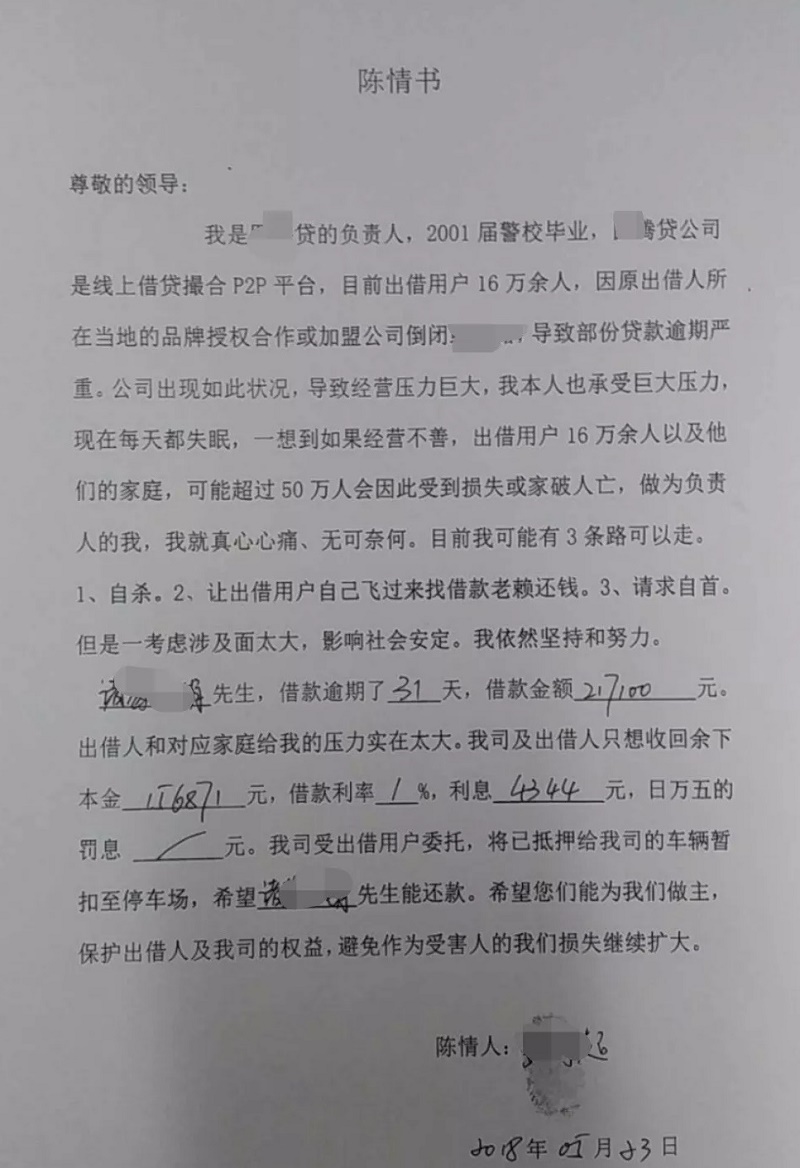 陈情书
尊敬的领导：
我是 贷的负责人，2001 届警校毕业， 腾贷公司
是线上借贷撮合 P2P 平台，目前出借用户 16 万余人，因原出借人所
在当地的品牌授权合作或加盟公司倒闭 ，导致部份贷款逾期严
重。公司出现如此状况，导致经营压力巨大，我本人也承受巨大压力，
现在每天都失眠，一想到如果经营不善，出借用户 16 万余人以及他
们的家庭，可能超过 50 万人会因此受到损失或家破人亡，做为负责
人的我，我就真心心痛、无可奈何。目前我可能有 3 条路可以走。
1、自杀。2、让出借用户自己飞过来找借款老赖还钱。3、请求自首。
但是一考虑涉及面太大，影响社会安定。我依然坚持和努力。
先生，借款逾期了 31 天，借款金额 217100 元。
出借人和对应家庭给我的压力实在太大。我司及出借人只想收回余下
本金 116871 元，借款利率 1 %，利息 4344 元，日万五的
罚息 / 元。我司受出借用户委托，将已抵押给我司的车辆暂
扣至停车场，希望 先生能还款。希望您们能为我们做主，
保护出借人及我司的权益，避免作为受害人的我们损失继续扩大。
陈情人： 超
2018 年 05 月 23 日